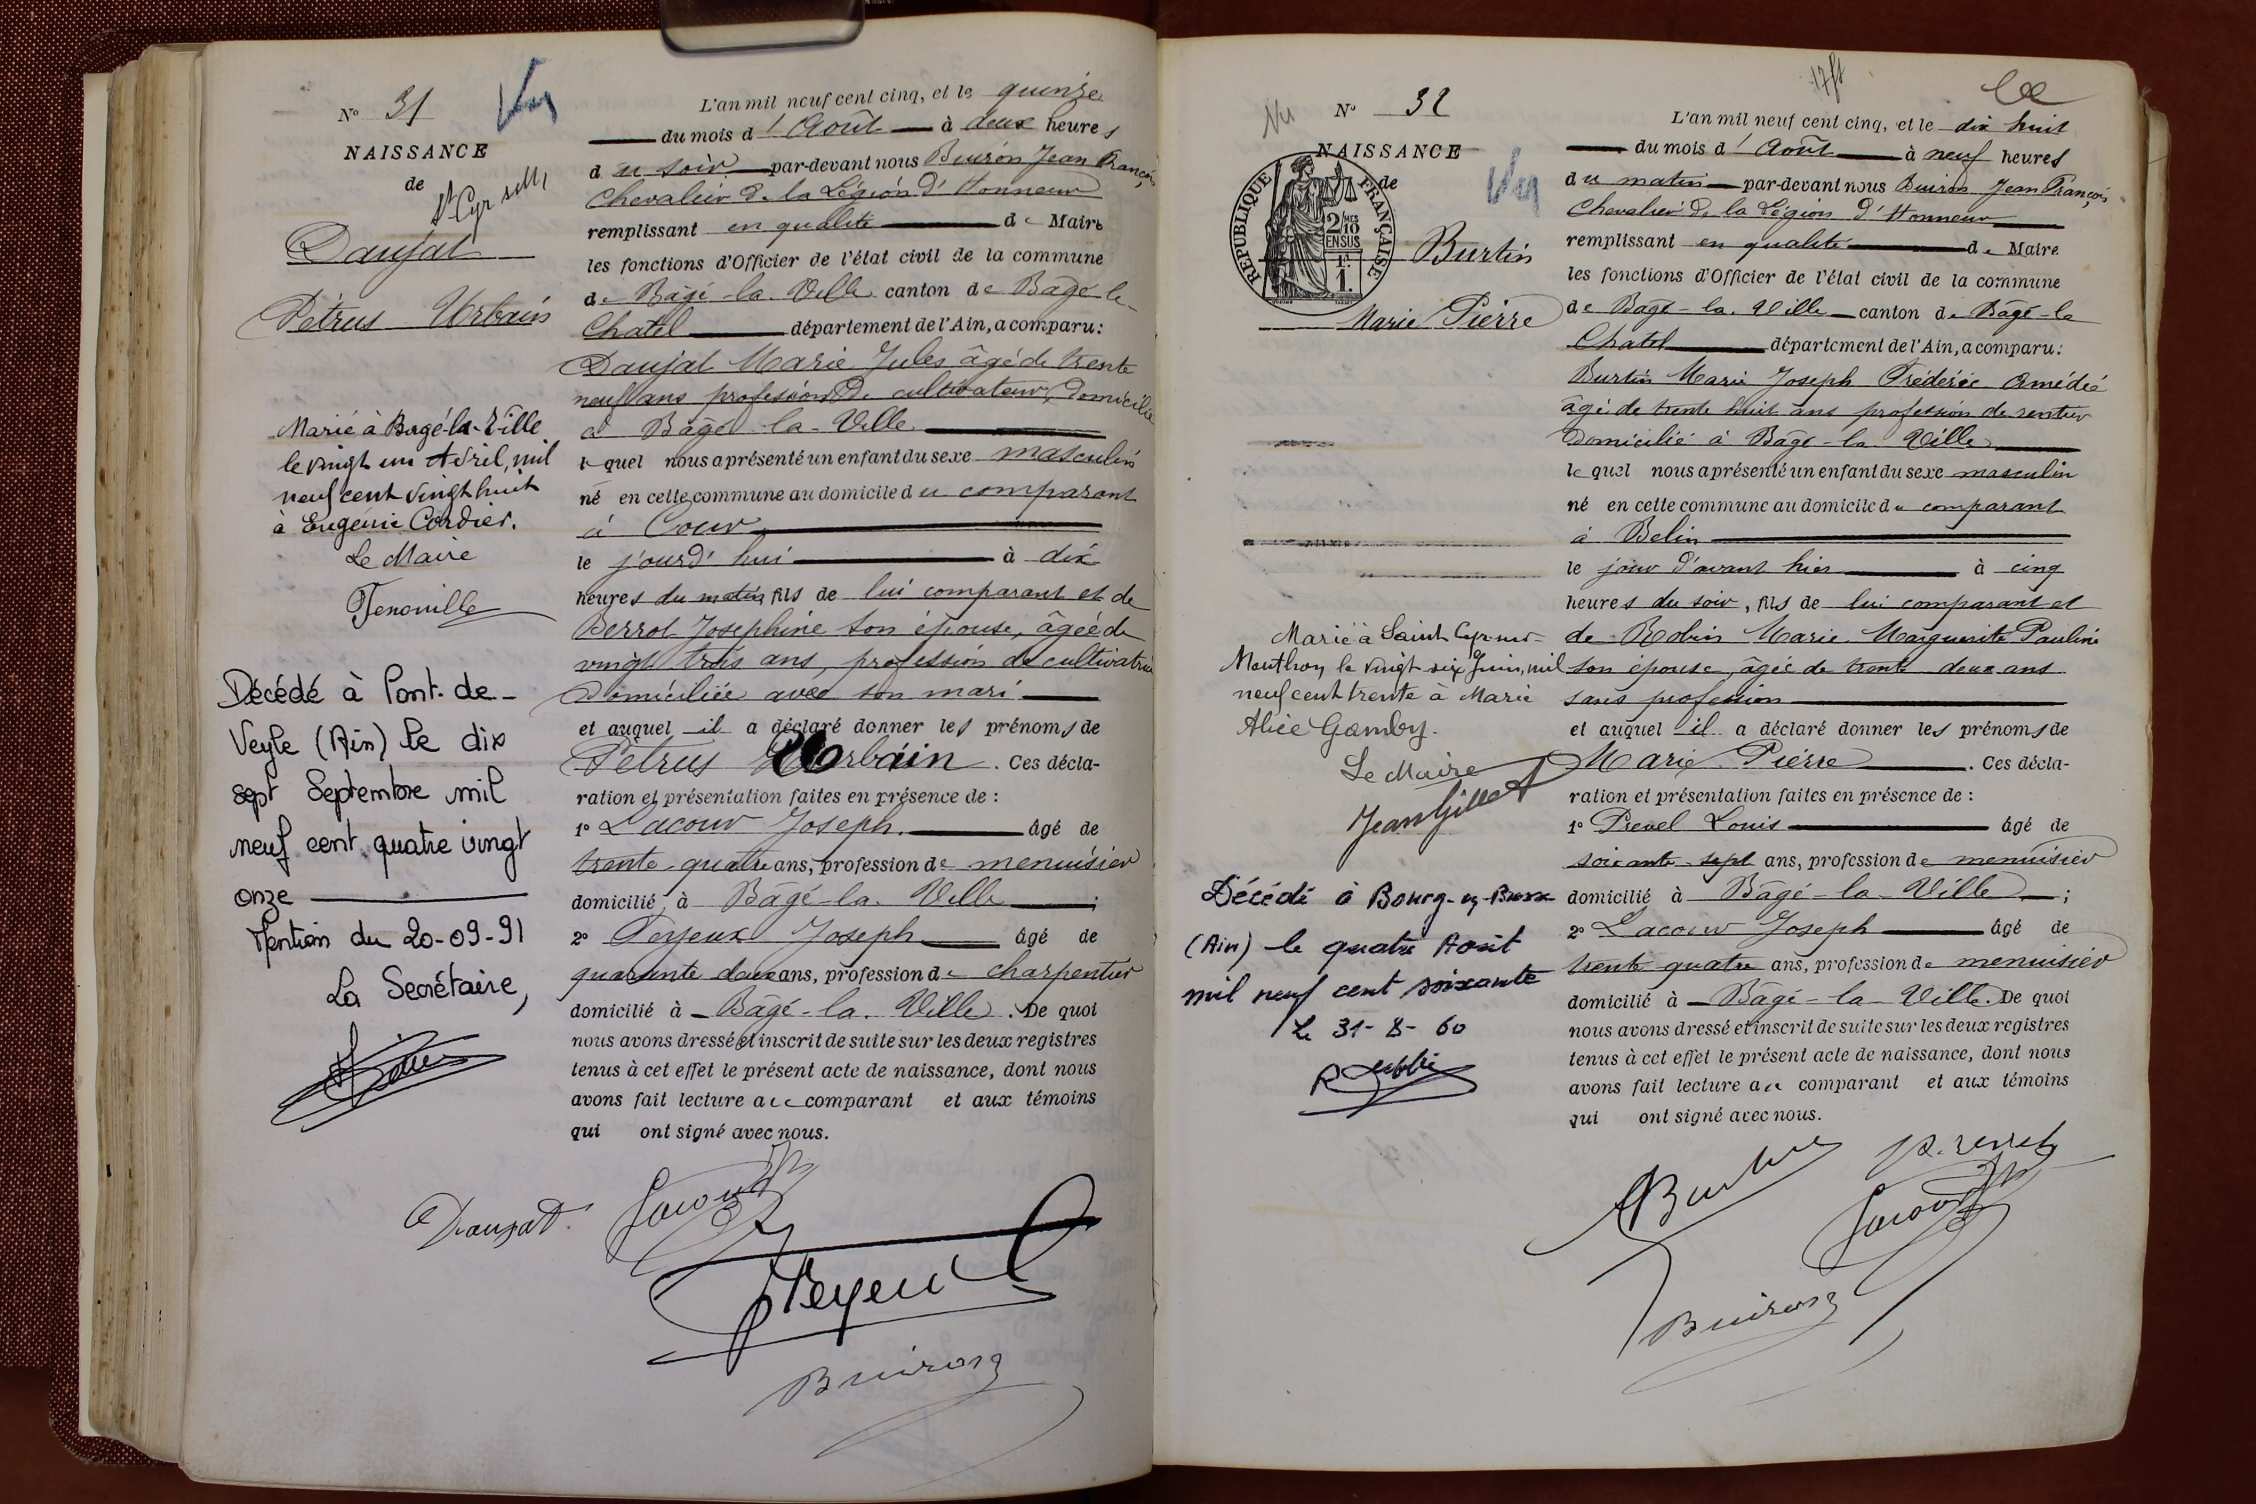 N° 31
NAISSANCE
de
St Cyr s/M
Daujat
Pétrus Urbain
Marié à Bagé-la-Ville
le vingt un Avril, mil
neuf cent vingt huit
à Eugénie Cordier.
Le Maire
Décédé à Pont-de-
Veyle (Ain) le dix
sept Septembre mil
neuf cent quatre vingt
onze
Mention du 20-09-91
La Secrétaire,
L'an mil neuf cent cinq, et le quinze
du mois d'Août à deux heures
du soir par-devant nous Buiron Jean François
Chevalier de la Légion d'Honneur
remplissant en qualité de Maire
les fonctions d'Officier de l'état civil de la commune
de Bâgé-la-Ville canton de Bâgé-le-
Chatel département de l'Ain, a comparu:
Daujat Marie Jules âgé de trente
neuf ans profession de cultivateur, domicilié
à Bâgé-la-Ville
lequel nous a présenté un enfant du sexe masculin
né en cette commune au domicile du comparant
à Cour
le jourd'hui à dix
heures du matin, fils de lui comparant et de
Berrot Josephine son épouse, âgée de
vingt trois ans, profession de cultivatrice
domiciliée avec son mari
et auquel il a déclaré donner les prénoms de
Pétrus Urbain. Ces décla-
ration et présentation faites en présence de :
1° Lacour Joseph âgé de
trente quatre ans, profession de menuisier
domicilié à Bâgé-la-Ville ;
2° Perjeux Joseph âgé de
quarante deux ans, profession de charpentier
domicilié à Bâgé-la-Ville. De quoi
nous avons dressé et inscrit de suite sur les deux registres
tenus à cet effet le présent acte de naissance, dont nous
avons fait lecture au comparant et aux témoins
qui ont signé avec nous.
Daujat
Lacour
Buiron
Vu
N° 32
NAISSANCE
de
RÉPUBLIQUE FRANÇAISE
2/10 MES
EN SUS
1.
Burtin
Marie Pierre
Marié à Saint Cyr-sur-
Menthon, le vingt six Juin, mil
neuf cent trente à Marie
Alice Gamby.
Le Maire
Jean Gillet
Décédé à Bourg-en-Bresse
(Ain) le quatre Août
mil neuf cent soixante
Le 31-8-60
L'an mil neuf cent cinq, et le dix huit
du mois d'Août à neuf heures
du matin par-devant nous Buiron Jean François
Chevalier de la Légion d'Honneur
remplissant en qualité de Maire
les fonctions d'Officier de l'état civil de la commune
de Bagé-la-Ville canton de Bâgé-le
Chatel département de l'Ain, a comparu:
Burtin Marie Joseph Fréderic Amédée
âgé de trente huit ans profession de rentier
domicilié à Bâgé-la-Ville
lequel nous a présenté un enfant du sexe masculin
né en cette commune au domicile du comparant
à Belin
le jour d'avant hier à cinq
heures du soir, fils de lui comparant et
de Robin Marie Marguerite Pauline
son épouse, âgée de trente deux ans
sans profession
et auquel il a déclaré donner les prénoms de
Marie Pierre. Ces décla-
ration et présentation faites en présence de :
1° Prevel Louis âgé de
soixante-sept ans, profession de menuisier
domicilié à Bâgé-la-Ville ;
2° Lacour Joseph âgé de
trente quatre ans, profession de menuisier
domicilié à Bâgé-la-Ville. De quoi
nous avons dressé et inscrit de suite sur les deux registres
tenus à cet effet le présent acte de naissance, dont nous
avons fait lecture au comparant et aux témoins
qui ont signé avec nous.
Burtin
Lacour
Buiron